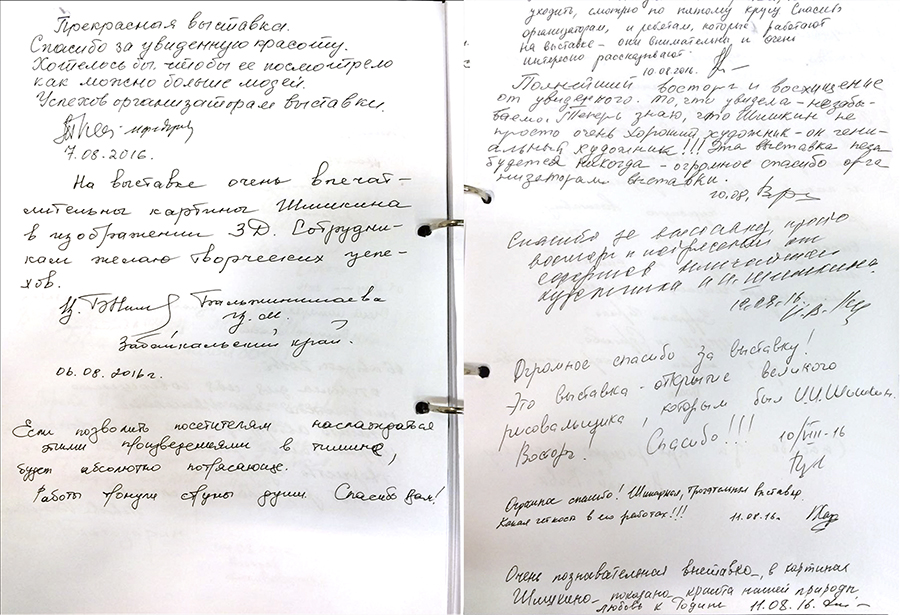 Прекрасная выставка.
Спасибо за увиденную красоту.
Хотелось бы, чтобы ее посмотрело
как можно больше людей.
Успехов организаторам выставки.
7.08.2016.
На выставке очень впечат-
лительны картины Шишкина
в изображении 3Д. Сотрудни-
кам желаю творческих успе-
хов.
Ц.
Ц.М.
Забайкальский край.
06.08.2016г.
Если позволить посетителям наслаждаться
этими произведениями в тишине,
будет абсолютно потрясающе.
Работы тронули струны души. Спасибо Вам!
уходить, смотрю по пятому кругу Спасибо
организаторам, и ребятам, которые работают
на выставке - они внимательны и очень
интересно рассказывают.
10.08.2016.
Полнейший восторг и восхищение
от увиденного. То, что увидела - незабы-
ваемо. Теперь знаю, что Шишкин не
просто очень хороший художник - он гени-
альный художник!!! Эта выставка не за
будется никогда - огромное спасибо орга
низаторам выставки.
10.08,
Спасибо за выставку, просто
восторг и потрясение от
художника И.И. Шишкина.
10.08.16.
Огромное спасибо за выставку!
Это выставка - открытие великого
рисовальщика, которым был И.И. Шишкин.
Восторг. Спасибо!!!
10/VIII-16
Огромное спасибо! Шикарная, трогательная выставка.
Какая четкость в его работах!!! 11.08.16г.
Очень познавательная выставка, в картинах
Шишкина показана красота нашей природы,
любовь к Родине 11.08.16.